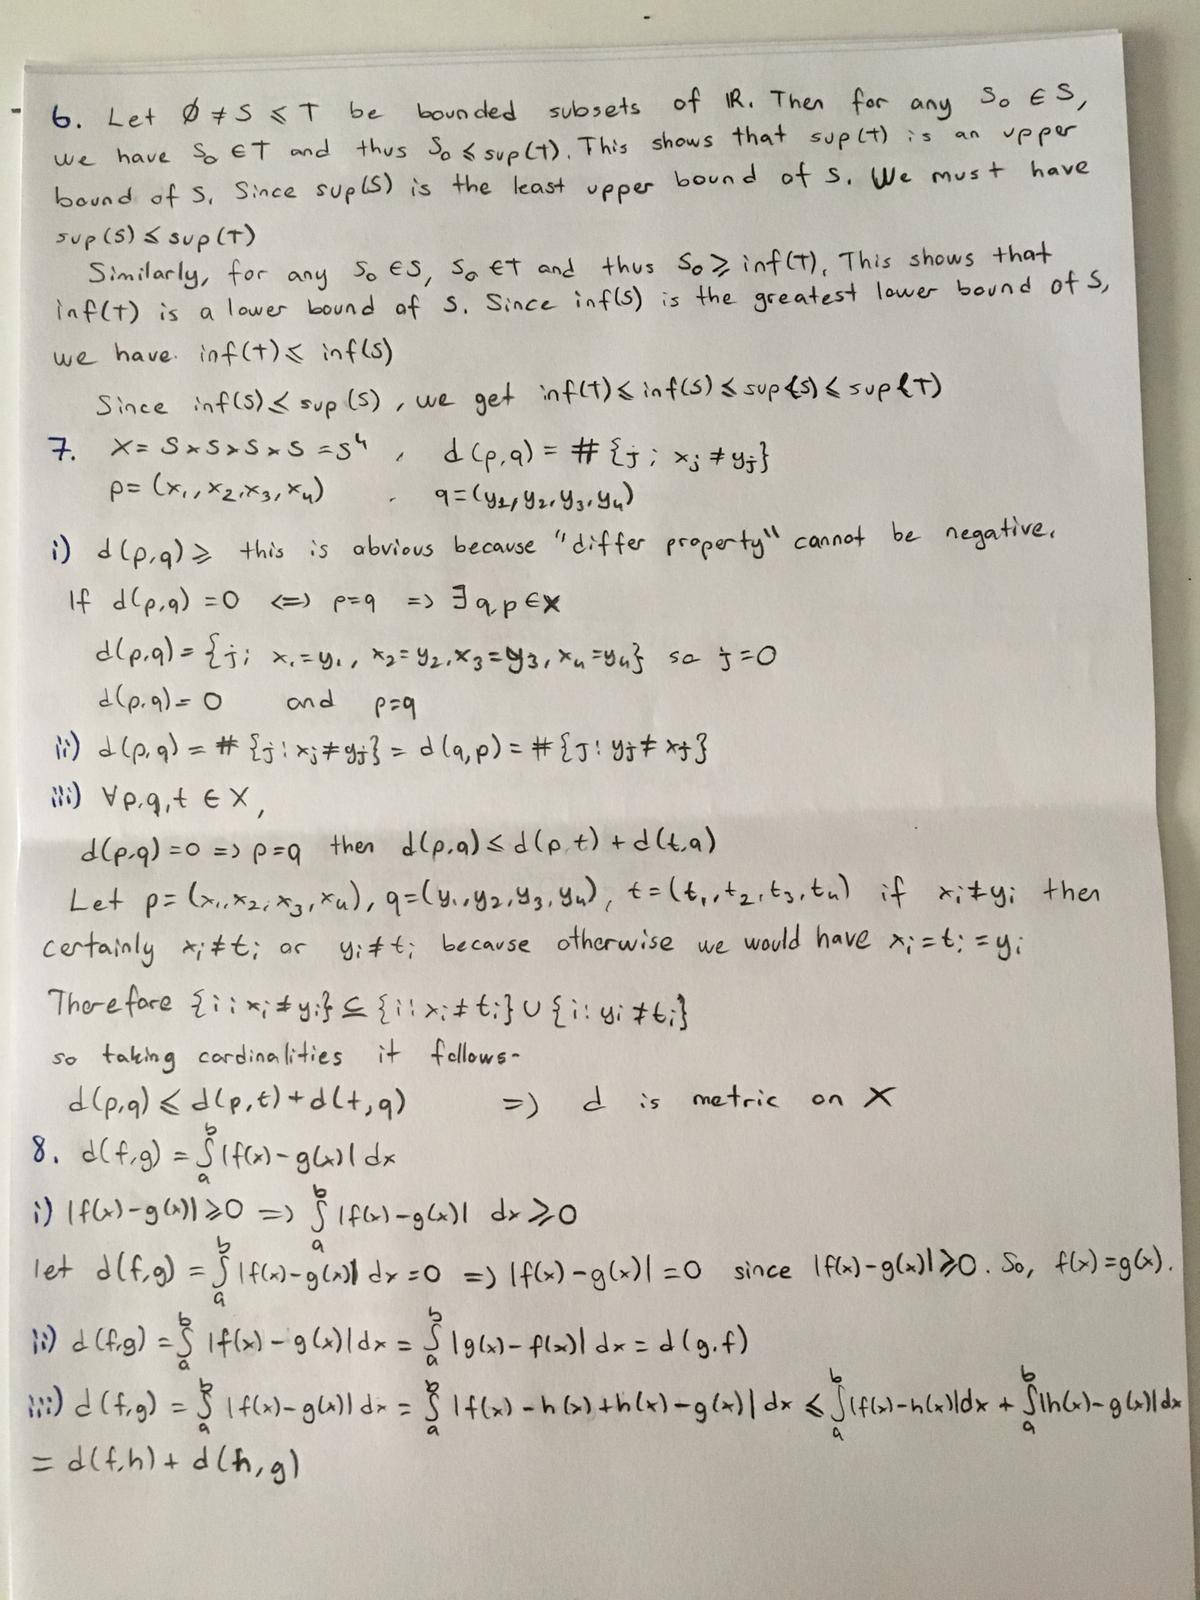 6. Let ∅ ≠ S ⩽ T be bounded subsets of ℝ. Then for any S₀ ∈ S,
we have S₀ ∈ T and thus S₀ ⩽ sup(T). This shows that sup(T) is an upper
bound of S. Since sup(S) is the least upper bound of S. We must have
sup(S) ⩽ sup(T)
Similarly, for any S₀ ∈ S, S₀ ∈ T and thus S₀ ⩾ inf(T). This shows that
inf(T) is a lower bound of S. Since inf(S) is the greatest lower bound of S,
we have inf(T) ⩽ inf(S)
Since inf(S) ⩽ sup(S), we get inf(T) ⩽ inf(S) ⩽ sup(S) ⩽ sup(T)
7. X = S × S × S × S = S⁴, d(p,q) = # {j ; xⱼ ≠ yⱼ}
p = (x₁, x₂, x₃, x₄), q = (y₁, y₂, y₃, y₄)
i) d(p,q) ⩾ this is obvious because "differ property" cannot be negative.
If d(p,q) = 0 <=> p=q => ∃ q,p ∈ X
d(p,q) = {j ; x₁ = y₁, x₂ = y₂, x₃ = y₃, x₄ = y₄} so j = 0
d(p,q) = 0 and p=q
ii) d(p,q) = # {j : xⱼ ≠ yⱼ} = d(q,p) = # {j : yⱼ ≠ xⱼ}
iii) ∀ p,q,t ∈ X,
d(p,q) = 0 => p=q then d(p,q) ⩽ d(p,t) + d(t,q)
Let p = (x₁, x₂, x₃, x₄), q = (y₁, y₂, y₃, y₄), t = (t₁, t₂, t₃, t₄) if xᵢ ≠ yᵢ then
certainly xᵢ ≠ tᵢ or yᵢ ≠ tᵢ because otherwise we would have xᵢ = tᵢ = yᵢ
Therefore {i : xᵢ ≠ yᵢ} ⊆ {i : xᵢ ≠ tᵢ} ∪ {i : yᵢ ≠ tᵢ}
so taking cardinalities it follows-
d(p,q) ⩽ d(p,t) + d(t,q) => d is metric on X
8. d(f,g) = ∫ₐᵇ |f(x) - g(x)| dx
i) |f(x) - g(x)| ⩾ 0 => ∫ₐᵇ |f(x) - g(x)| dx ⩾ 0
let d(f,g) = ∫ₐᵇ |f(x) - g(x)| dx = 0 => |f(x) - g(x)| = 0 since |f(x) - g(x)| ⩾ 0. So, f(x) = g(x).
ii) d(f,g) = ∫ₐᵇ |f(x) - g(x)| dx = ∫ₐᵇ |g(x) - f(x)| dx = d(g,f)
iii) d(f,g) = ∫ₐᵇ |f(x) - g(x)| dx = ∫ₐᵇ |f(x) - h(x) + h(x) - g(x)| dx ⩽ ∫ₐᵇ |f(x) - h(x)| dx + ∫ₐᵇ |h(x) - g(x)| dx
= d(f,h) + d(h,g)